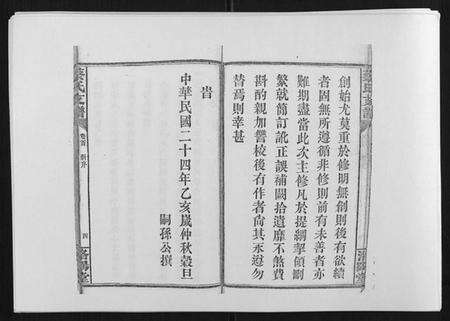 創始尤莫重於修明無創則後有欲續
者固無所遵循非修則前有未善者亦
難期盡當此次主修凡於提綱挈領刪
繁就簡訂訛正誤補闕拾遺靡不煞費
斟酌親加讐校後有作者尙其永遵勿
替焉則幸甚
旹
中華民國二十四年乙亥歲仲秋穀旦
嗣孫公撰
氏支譜
卷首
新序
四
堂